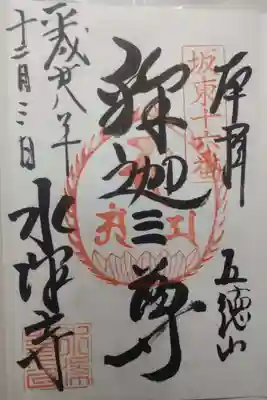 奉拝
坂東十六番
五徳山
釈迦三尊
水澤寺
平成廿八年
十二月三日